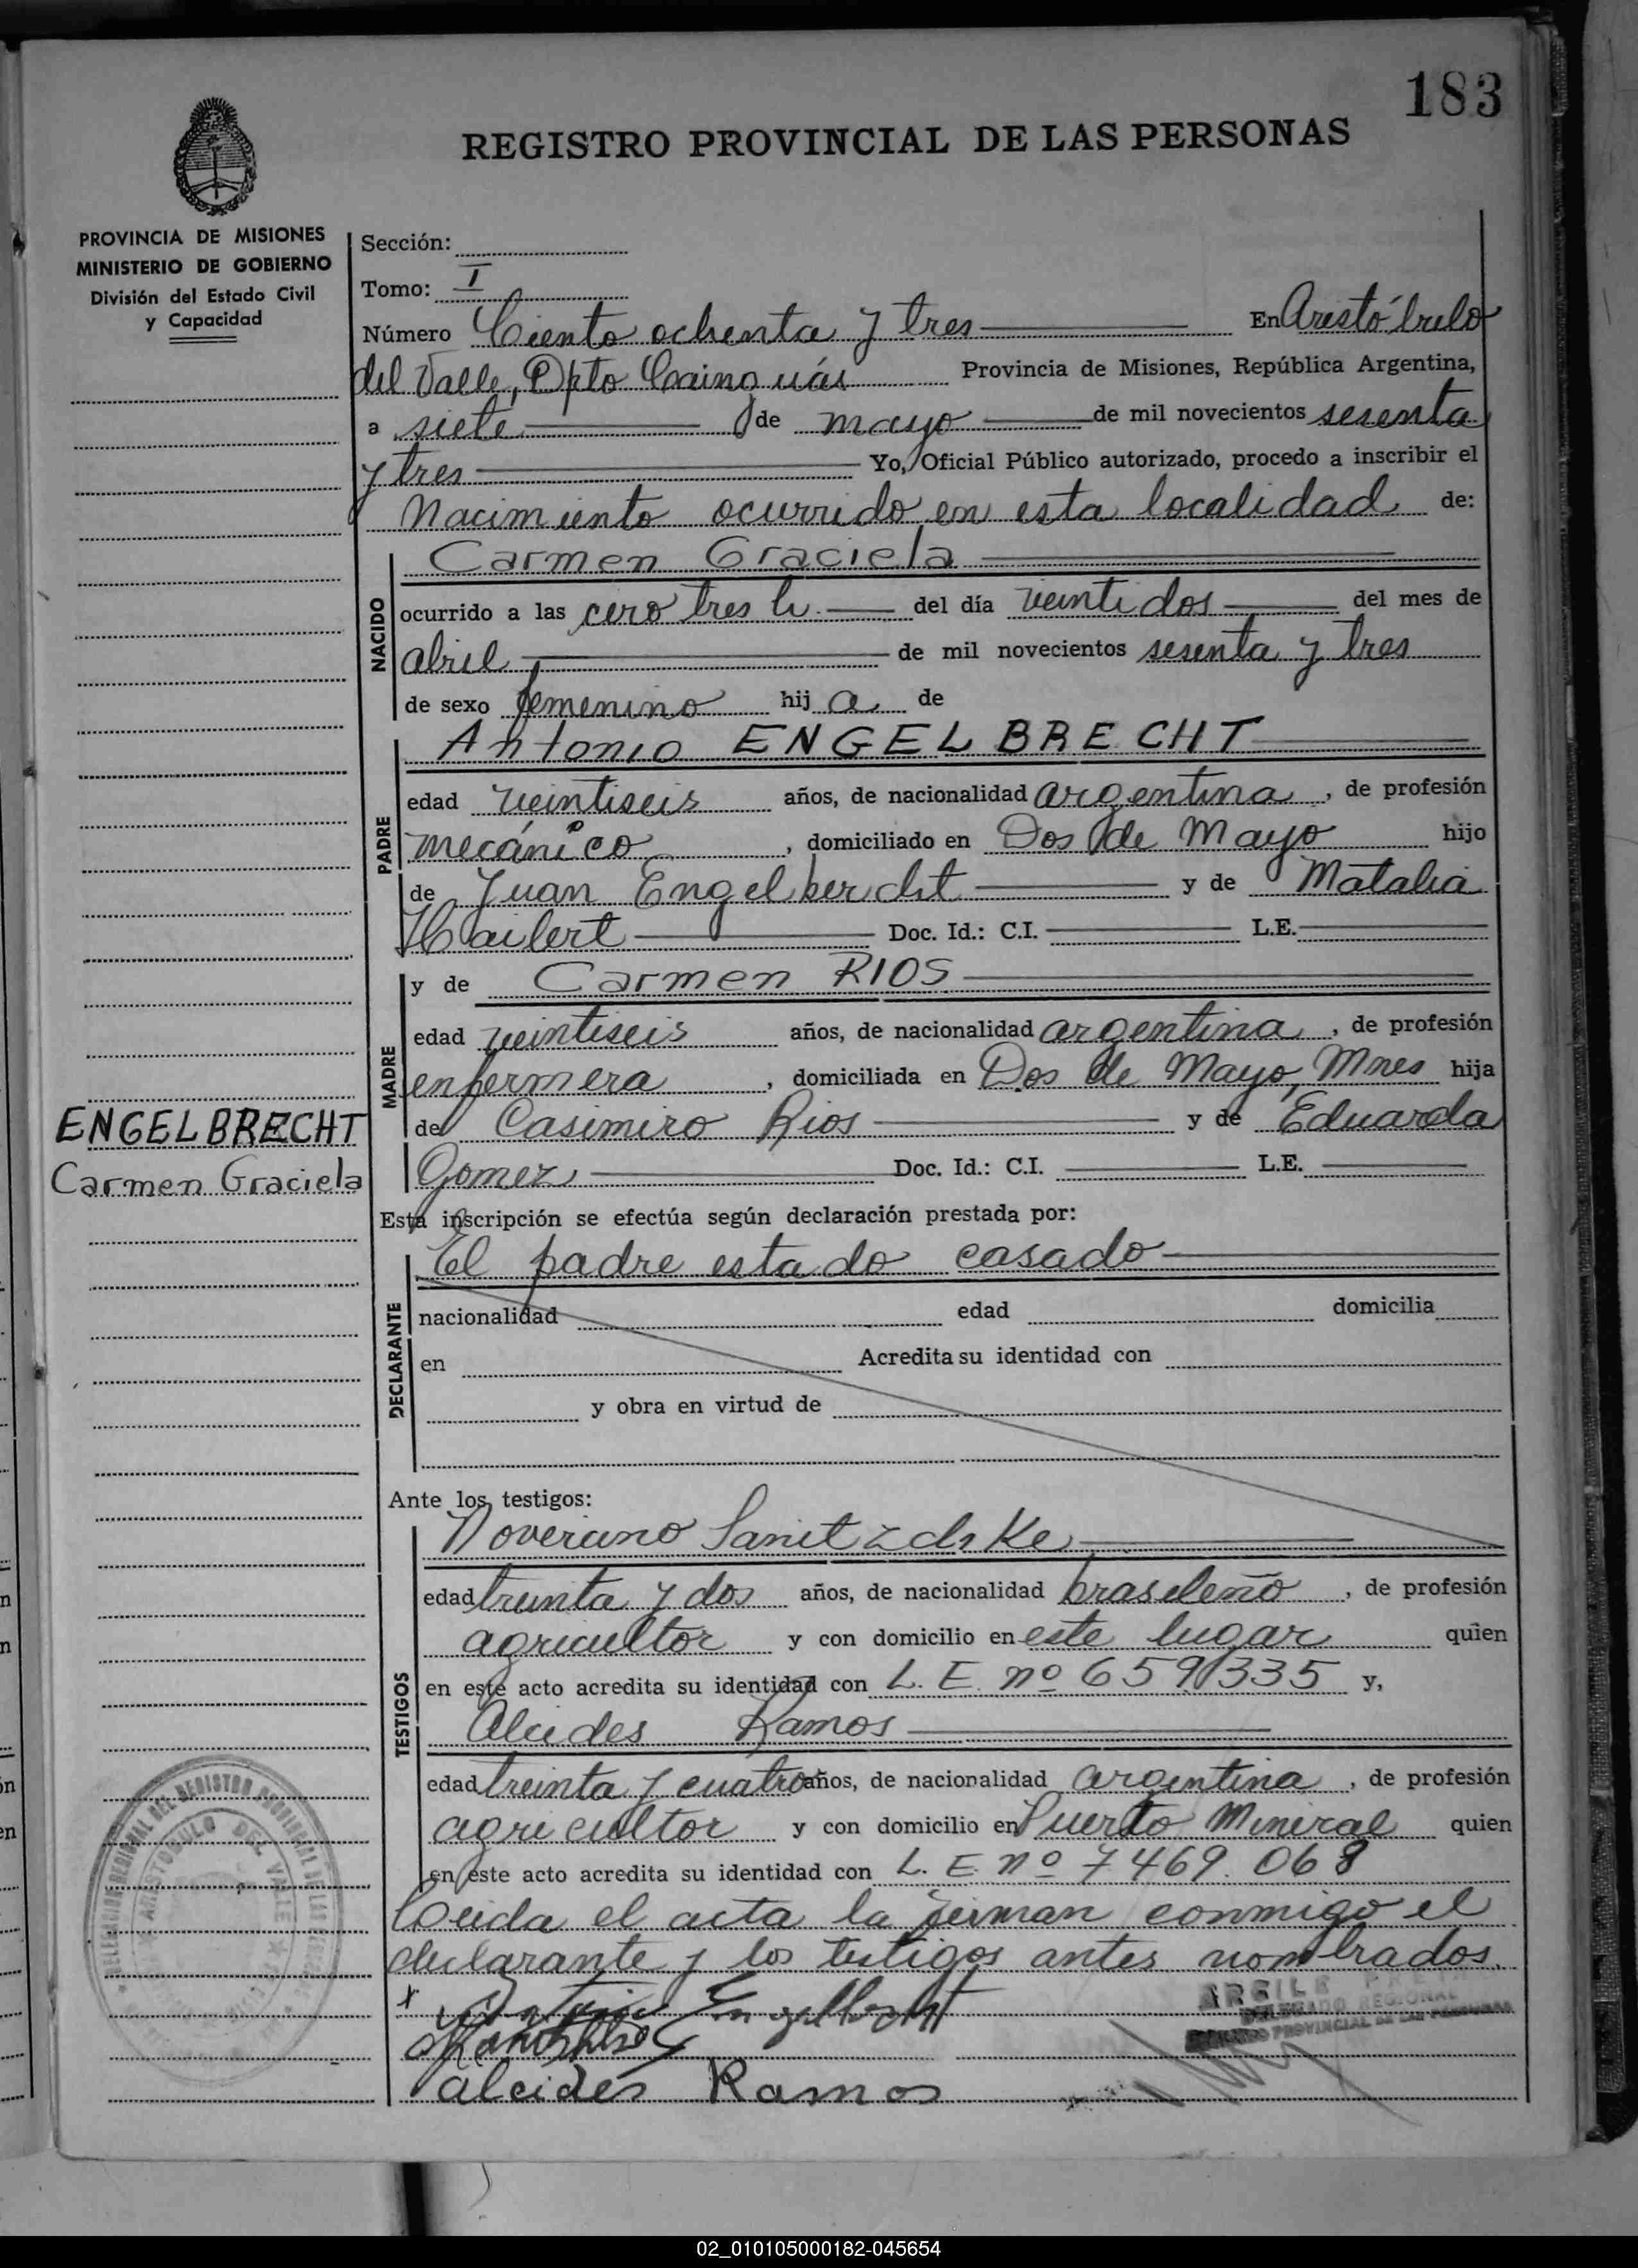 183
REGISTRO PROVINCIAL DE LAS PERSONAS
PROVINCIA DE MISIONES
MINISTERIO DE GOBIERNO
División del Estado Civil
y Capacidad
Sección:
Tomo: I
Número Ciento ochenta y tres En Aristóbulo
del Valle, Dpto Cainguás Provincia de Misiones, República Argentina,
a siete de mayo de mil novecientos sesenta
y tres Yo, Oficial Público autorizado, procedo a inscribir el
Nacimiento ocurrido en esta localidad de:
NACIDO
Carmen Graciela
ocurrido a las cero tres h. del día veintidos del mes de
abril de mil novecientos sesenta y tres
de sexo femenino hij a de
PADRE
Antonio ENGELBRECHT
edad veintiseis años, de nacionalidad argentina, de profesión
mecánico, domiciliado en Dos de Mayo hijo
de Juan Engelbercht y de Matalia
Hailert Doc. Id.: C.I. L.E.
MADRE
y de Carmen RIOS
edad veintiseis años, de nacionalidad argentina, de profesión
enfermera, domiciliada en Dos de Mayo, Mnes hija
de Casimiro Rios y de Eduarda
Gomez Doc. Id.: C.I. L.E.
ENGELBRECHT
Carmen Graciela
Esta inscripción se efectúa según declaración prestada por:
DECLARANTE
El padre estado casado
nacionalidad edad domicilia
en Acredita su identidad con
y obra en virtud de
Ante los testigos:
TESTIGOS
edad treinta y dos años, de nacionalidad brasileño, de profesión
agricultor y con domicilio en este lugar quien
en este acto acredita su identidad con L. E. nº 6591335 y,
Alcides Ramos
edad treinta y cuatro años, de nacionalidad argentina, de profesión
agricultor y con domicilio en Puerto Mineral quien
en este acto acredita su identidad con L. E. nº 7469.068
Leida el acta la firman conmigo el
declarante y los testigos antes nombrados.
x Antonio Engelbrecht
alcides Ramos
ARISTOBULO DEL VALLE
DELEGADO REGIONAL
REGISTRO PROVINCIAL DE LAS PERSONAS
02_010105000182-045654